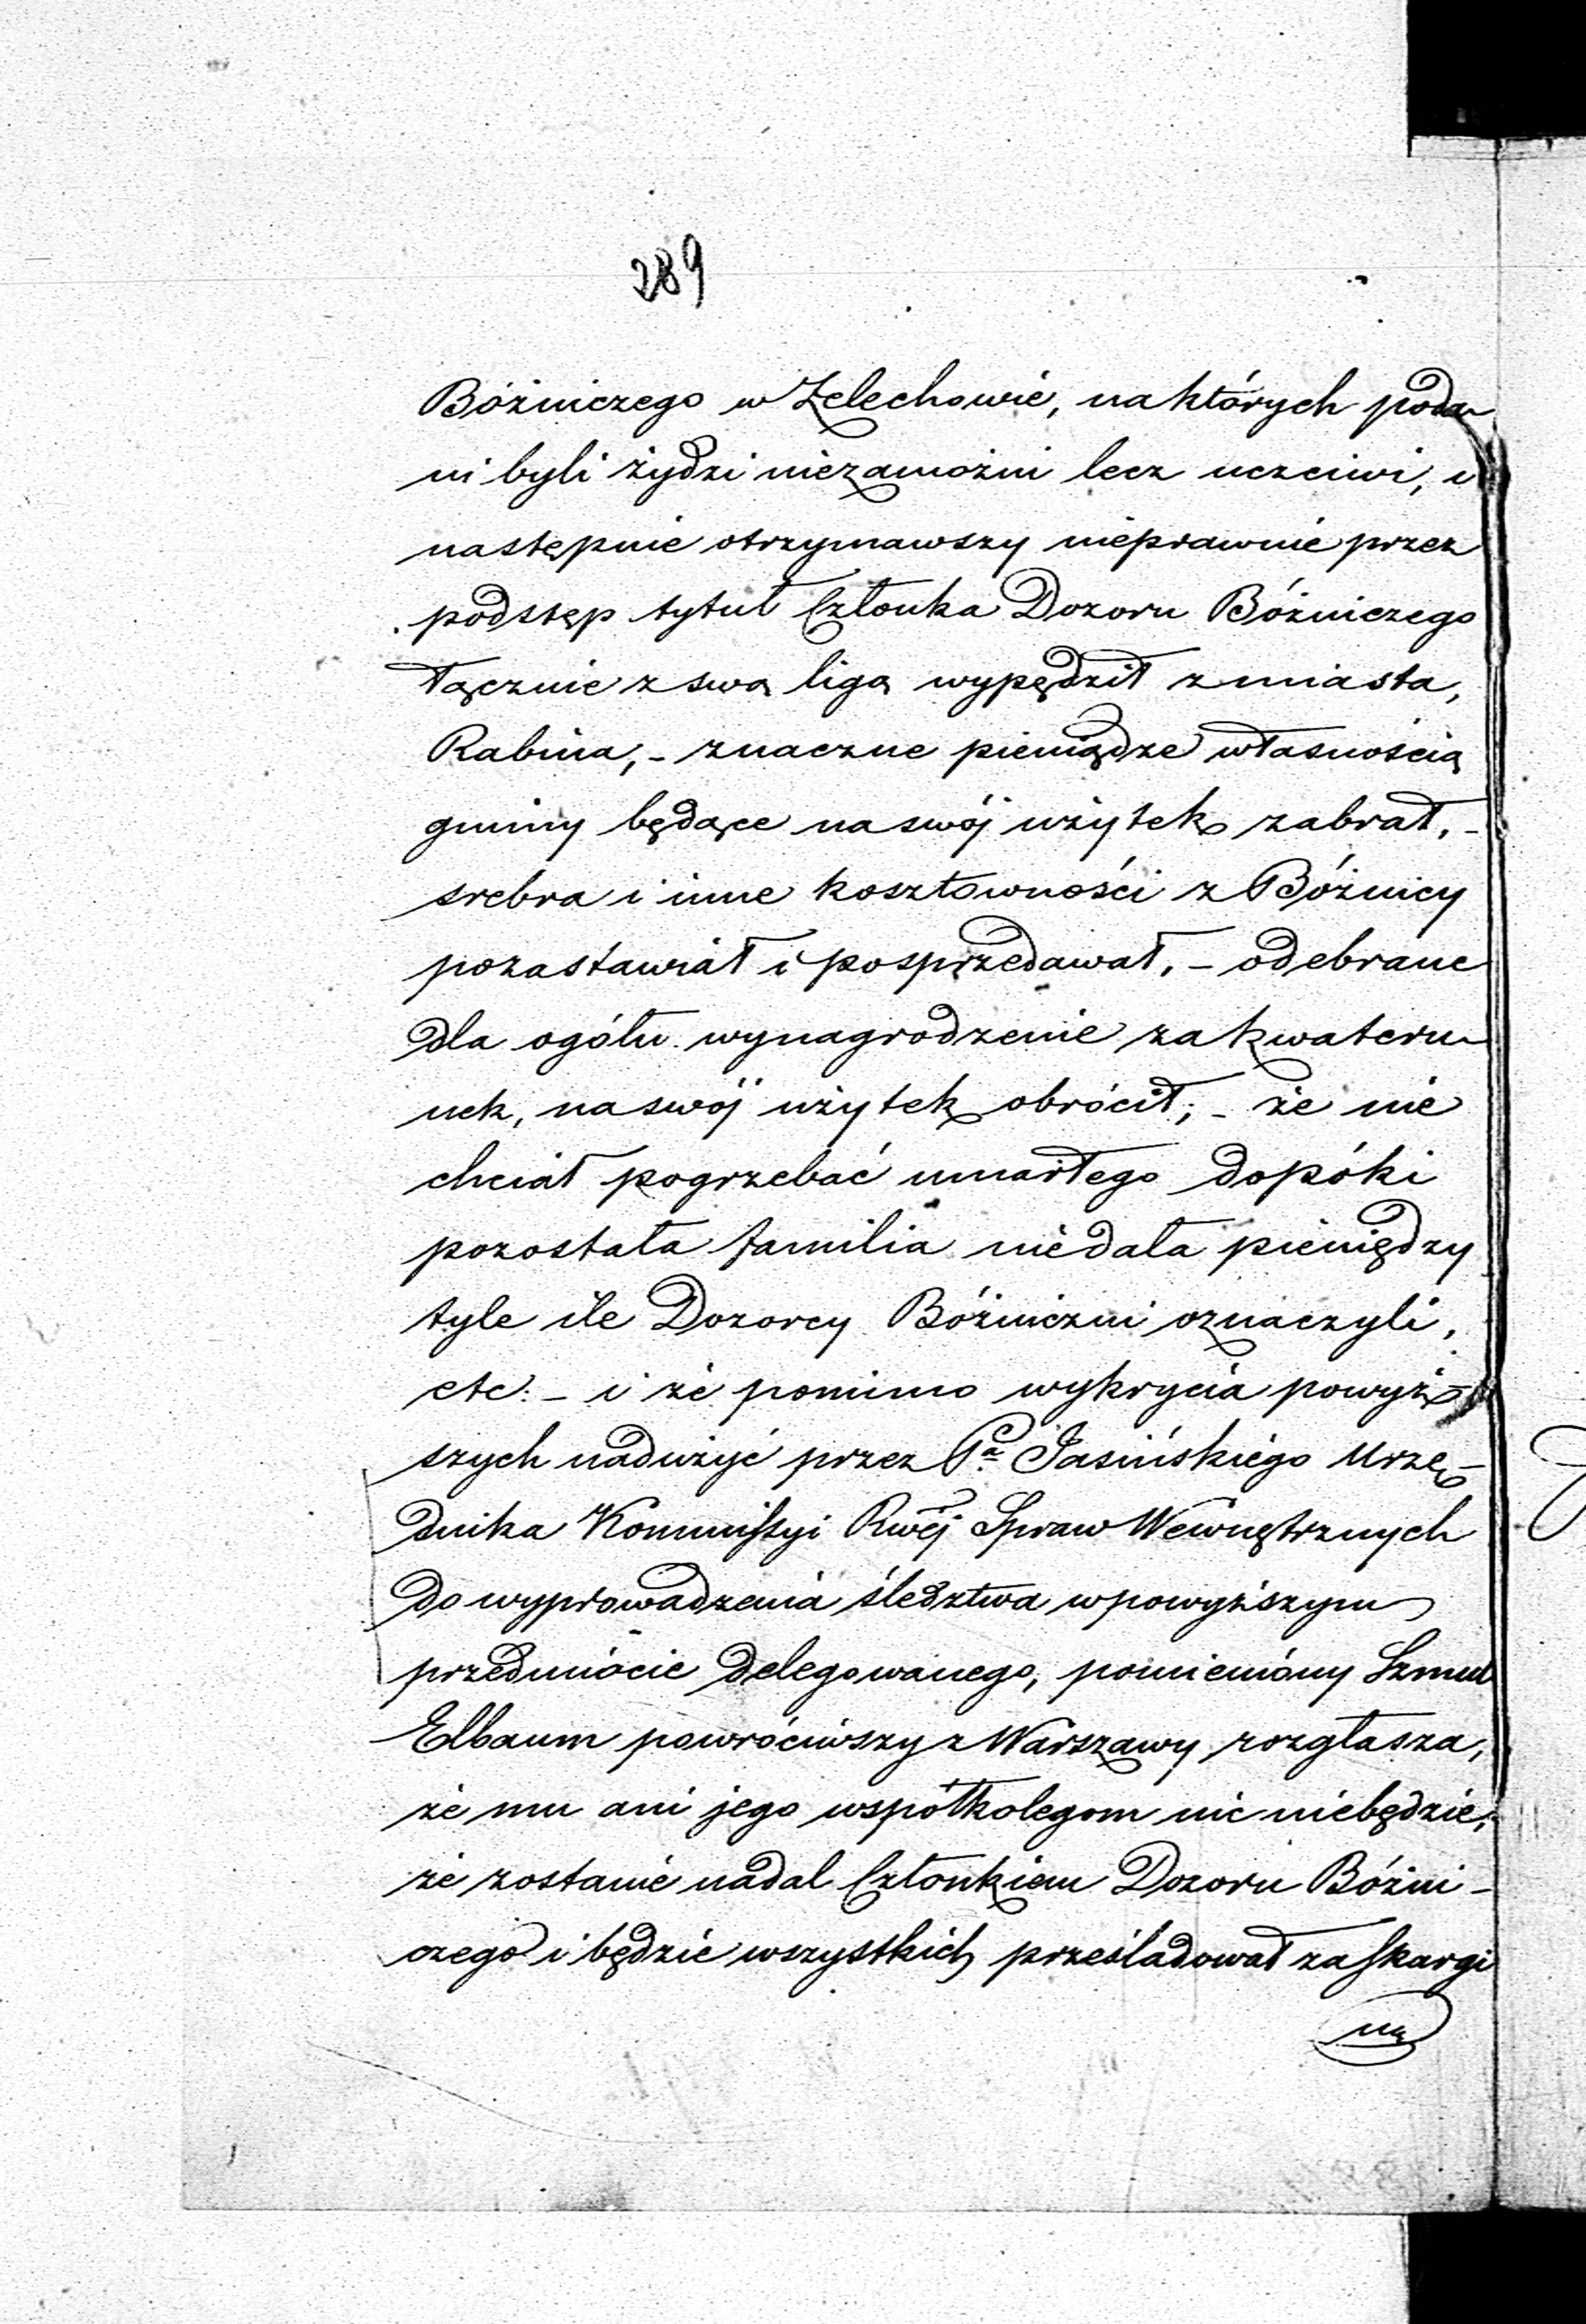 289
Bóżniczego w Żelechowie, na których poda-
ni byli żydzi niezamożni lecz uczciwi, i
następnie otrzymawszy nieprawnie przez
podstęp tytuł Członka Dozoru Bóżniczego
łącznie z swą ligą wypędził z miasta,
Rabina, - znaczne pieniądze własnością
gminy będące na swój użytek zabrał, -
srebra i inne kosztowności z Bóżnicy
pozastawiał i posprzedawał, - odebrane
dla ogółu wynagrodzenie za kwateru-
nek, na swój użytek obrócił; - że nie
chciał pogrzebać umarłego dopóki
pozostała familia niedała pieniędzy
tyle ile Dozorcy Bóżniczni oznaczyli,
etc: - i że pomimo wykrycia powyż-
szych nadużyć przez Pa Jasińskiego Urzę-
dnika Kommissyi Rwéj Spraw Wewnętrznych
do wyprowadzenia śledztwa w powyższym
przedmiocie delegowanego, pomieniony Szmul
Elbaum powróciwszy z Warszawy rozgłasza,
że mu ani jego współkolegom nic niebędzie,
że zostanie nadal Członkiem Dozoru Bóżni-
czego i będzie wszystkich prześladował za skargi
na